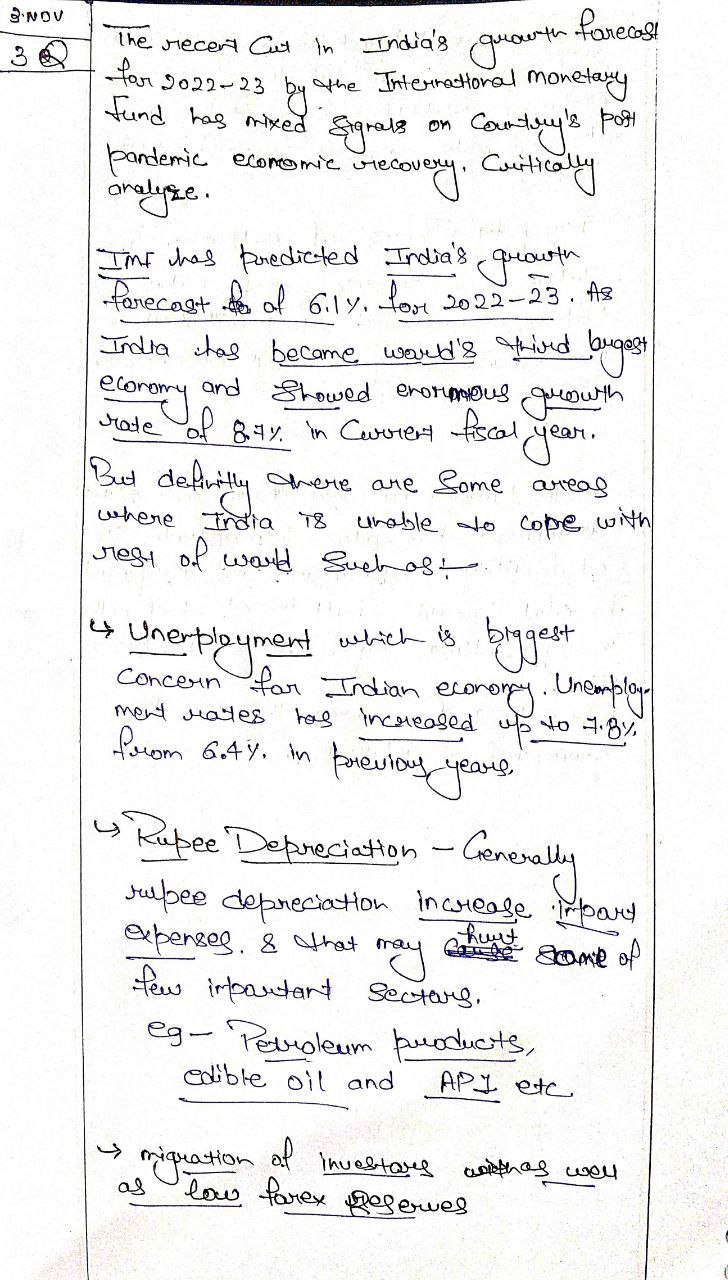 3.NOV
3 Q
The recent Cut in India's growth forecast
for 2022-23 by the International monetary
fund has mixed signals on Country's post
pandemic economic recovery. Critically
analyze.
IMF has predicted India's growth
forecast of 6.1%. for 2022-23. As
India has became world's third largest
economy and showed enormous growth
rate of 8.7% in Current fiscal year.
But definitly there are some areas
where India is unable to cope with
rest of world Such as:-
↳ Unemployment which is biggest
concern for Indian economy. Unemploy-
ment rates has increased up to 7.8%
from 6.4%. in previous years.
↳ Rupee Depreciation - Generally
rupee depreciation increase import
expenses. & that may hurt some of
few important sectors.
eg- Petroleum products,
edible oil and API etc
→ migration of investors as well
as low forex Reserves